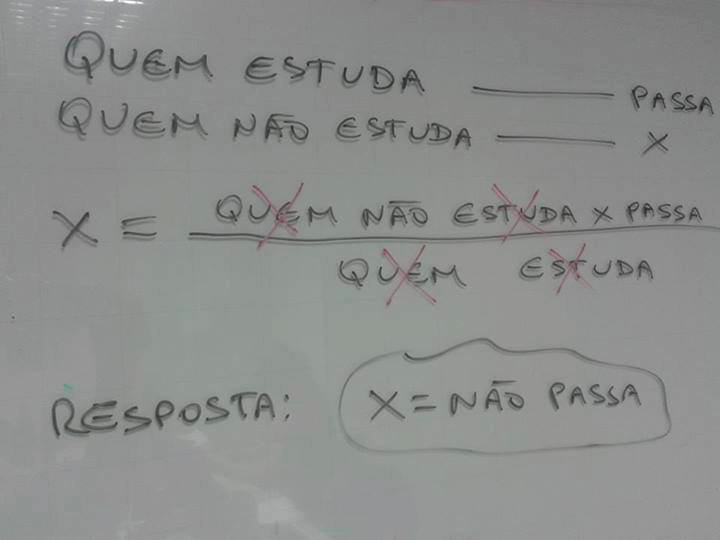 QUEM ESTUDA ——— PASSA
QUEM NÃO ESTUDA ——— X
X = QUEM NÃO ESTUDA X PASSA
QUEM ESTUDA
RESPOSTA: X = NÃO PASSA